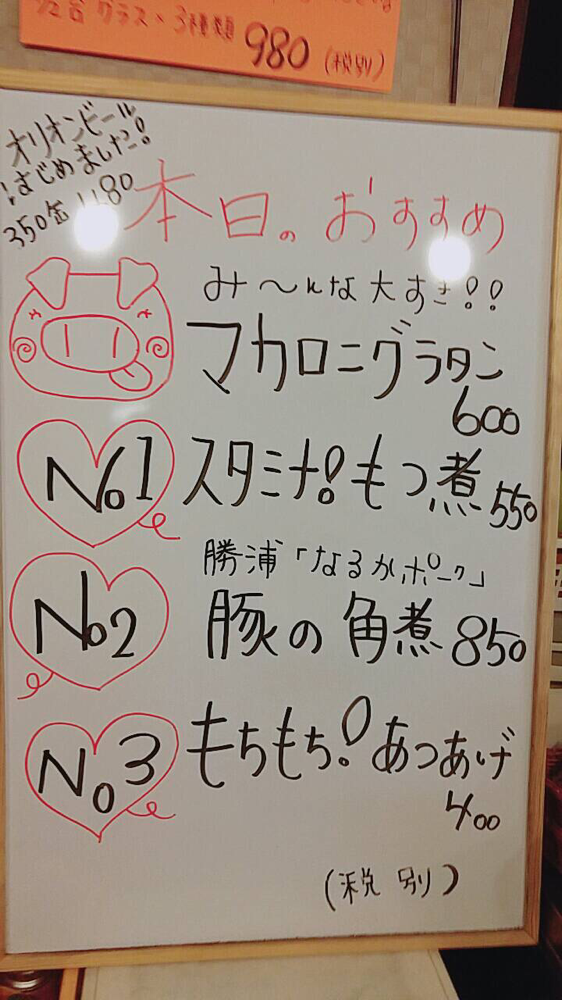 グラス・3種類 980 (税別)
オリオンビール
はじめました!
350缶
本日のおすすめ
み〜んな大すき!!
マカロニグラタン
600
No1 スタミナ!もつ煮 550
勝浦「なるかポーク」
No2 豚の角煮 850
No3 もちもち!あつあげ
400
(税別)